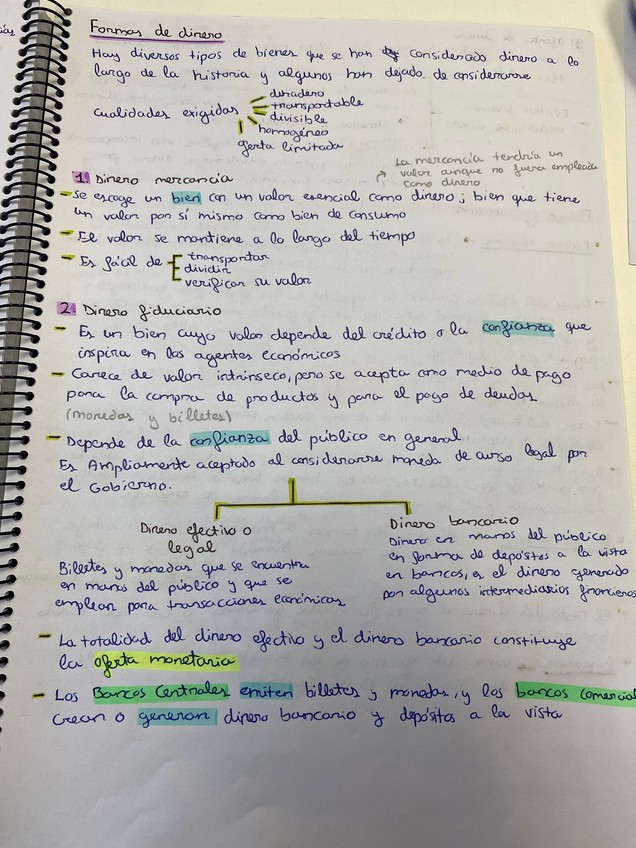 Formas de dinero
Hay diversos tipos de bienes que se han considerado dinero a lo
largo de la historia y algunos han dejado de considerarse
cualidades exigidas
duradero
transportable
divisible
homogéneo
oferta limitada
1. Dinero mercancía
La mercancía tendría un
valor aunque no fuera empleada
como dinero
- Se escoge un bien con un valor esencial como dinero; bien que tiene
un valor por sí mismo como bien de consumo
- El valor se mantiene a lo largo del tiempo
- Es fácil de
transportar
dividir
verificar su valor
2. Dinero fiduciario
- Es un bien cuyo valor depende del crédito o la confianza que
inspira en los agentes económicos
- Carece de valor intrínseco, pero se acepta como medio de pago
para la compra de productos y para el pago de deudas
(monedas y billetes)
- Depende de la confianza del público en general
Es Ampliamente aceptado al considerarse moneda de curso legal por
el Gobierno.
Dinero efectivo o
legal
Billetes y monedas que se encuentra
en manos del público y que se
emplean para transacciones económicas
Dinero bancario
Dinero en manos del público
en forma de depósitos a la vista
en bancos, es el dinero generado
por algunos intermediarios financieros
- La totalidad del dinero efectivo y el dinero bancario constituye
la oferta monetaria
- Los Bancos Centrales emiten billetes y monedas, y los bancos comercial
crean o generan dinero bancario y depósitos a la vista